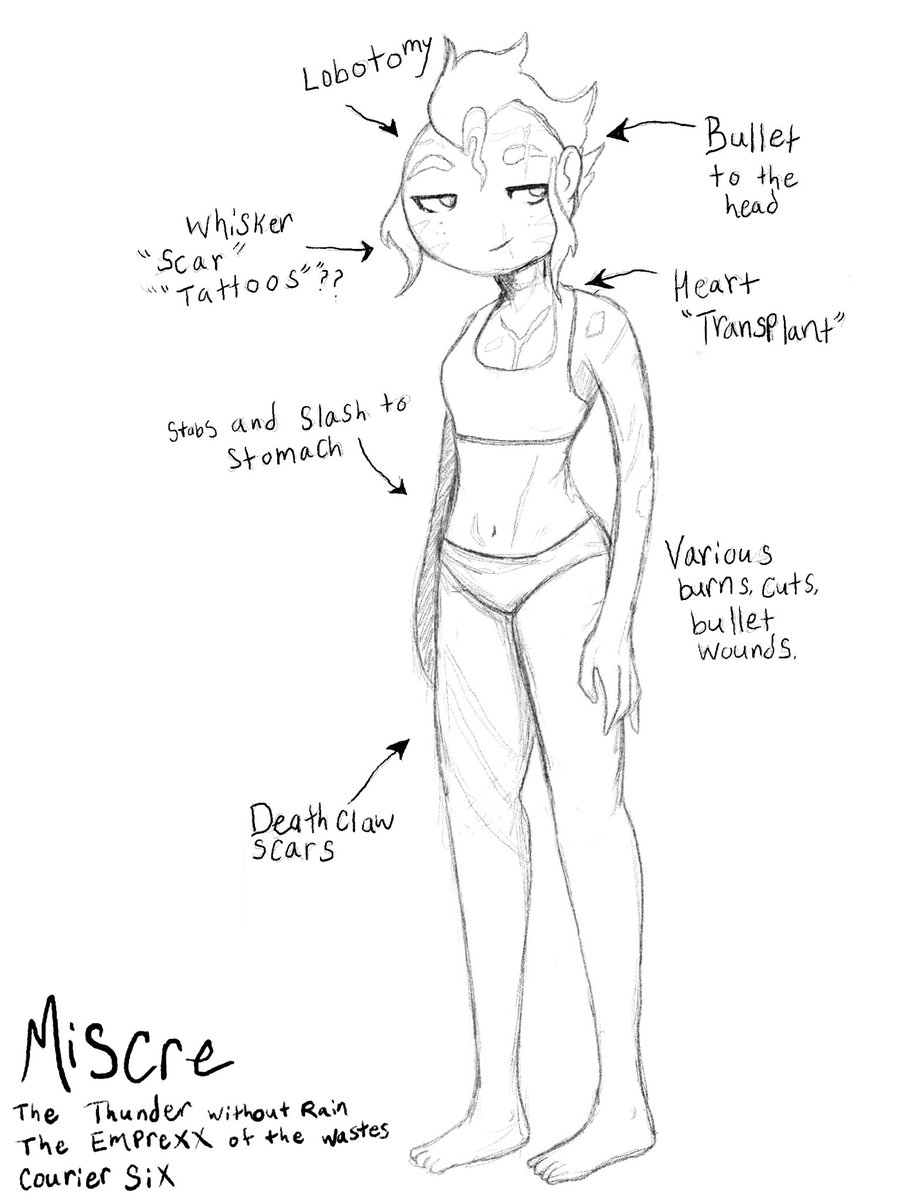 Lobotomy
Bullet
to the
head
Whisker
"Scar"
""Tattoos""??
Heart
"Transplant"
Stabs and Slash to
Stomach
Various
burns, cuts,
bullet
wounds.
Deathclaw
scars
Miscre
The Thunder without Rain
The EmpreXX of the Wastes
Courier Six